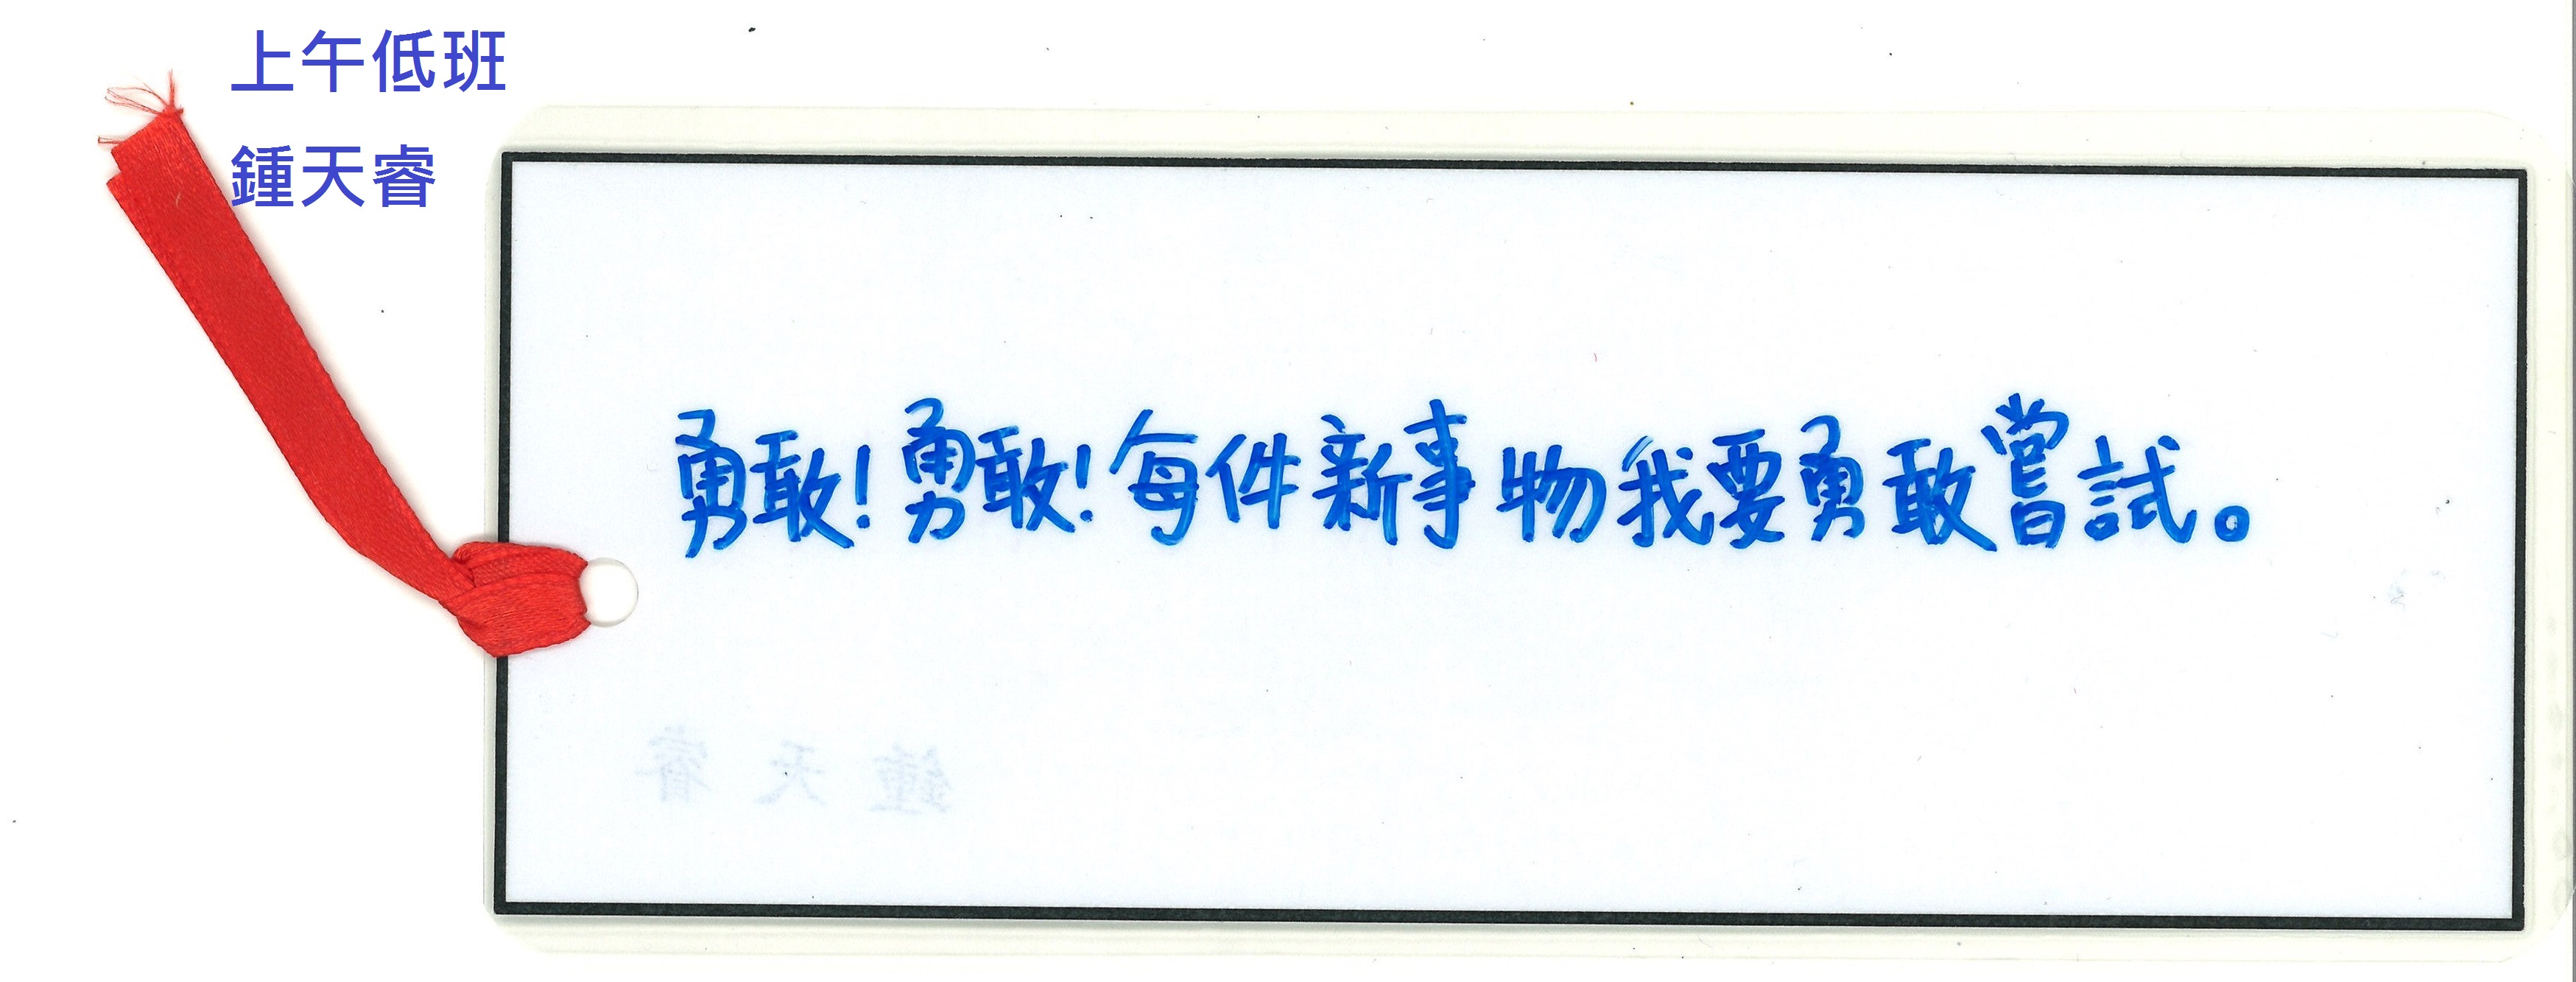 上午低班
鍾天睿
勇敢!勇敢!每件新事物我要勇敢嘗試。
鍾天睿